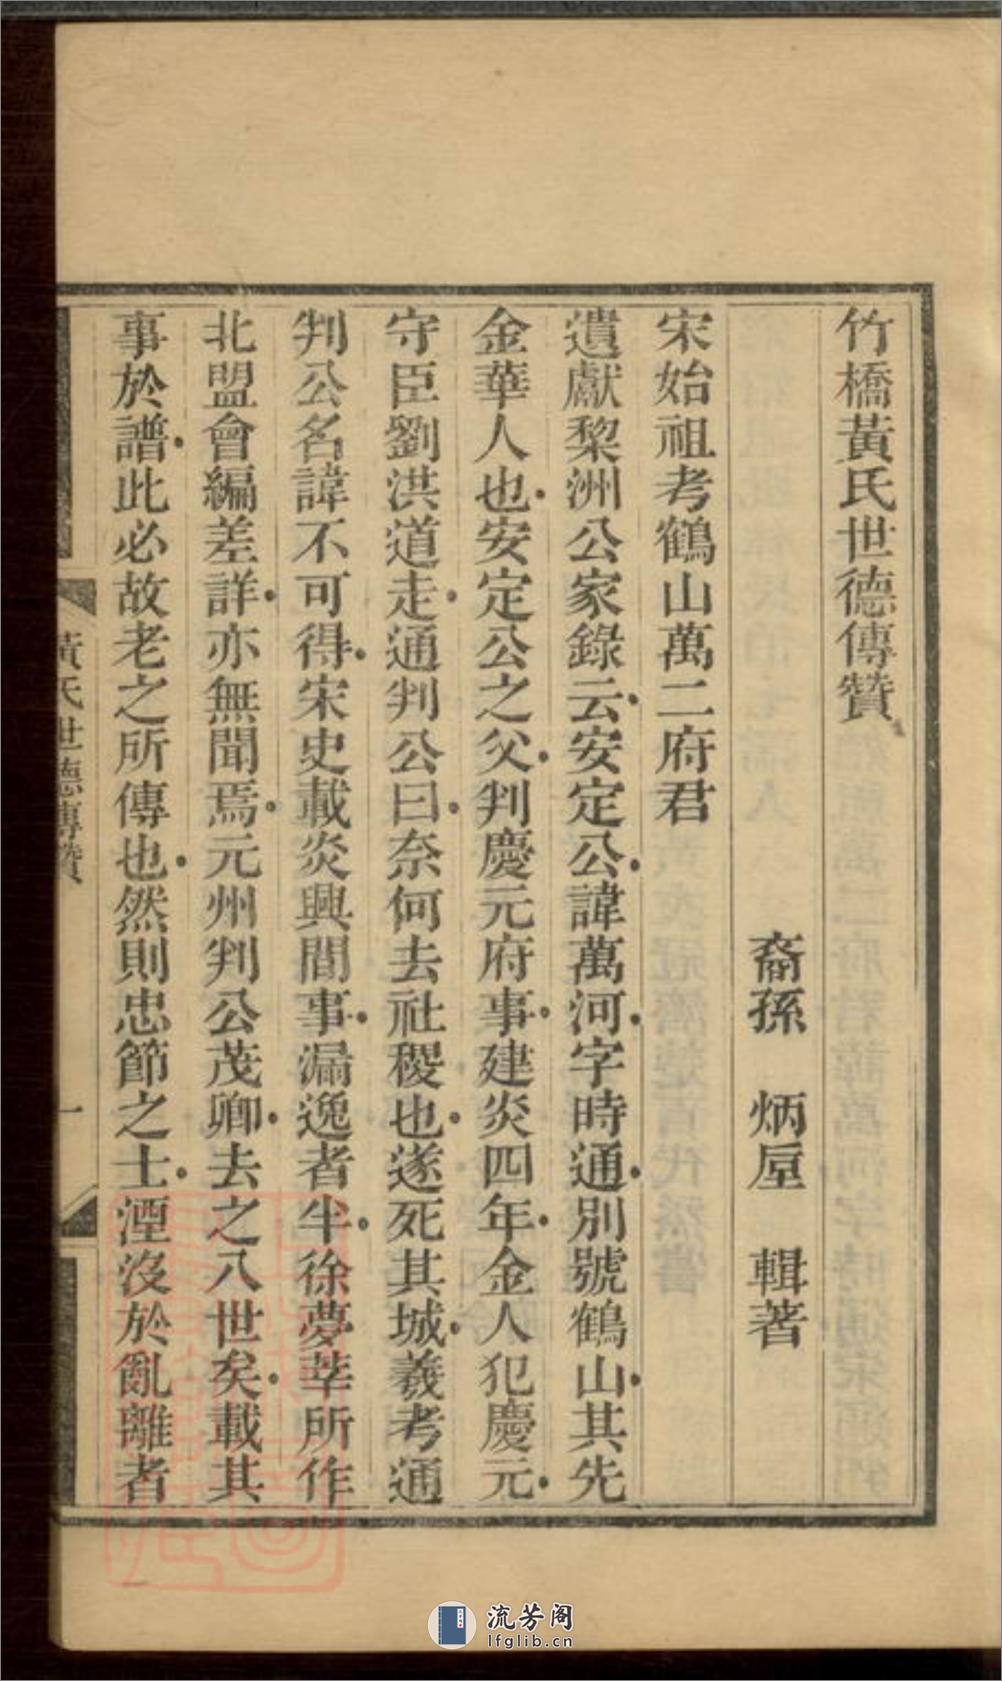 竹橋黃氏世德傳贊
裔孫　炳垕　輯著
宋始祖考鶴山萬二府君
遺獻棃洲公家錄云安定公諱萬河字時通別號鶴山其先
金華人也安定公之父判慶元府事建炎四年金人犯慶元
守臣劉洪道走通判公曰奈何去社稷也遂死其城羲考通
判公名諱不可得宋史載炎興間事漏逸者半徐夢莘所作
北盟會編差詳亦無聞焉元州判公茂卿去之八世矣載其
事於譜此必故老之所傳也然則忠節之士湮沒於亂離者
黃氏世德傳贊
一
流芳阁
lfglib.cn